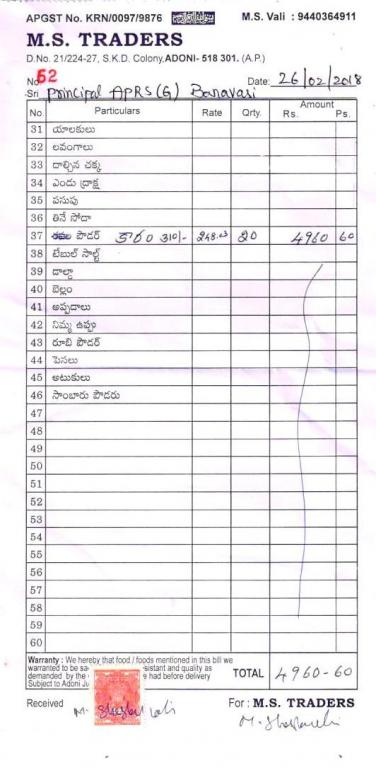 APGST No. KRN/0097/9876 M.S. Vali : 9440364911
M.S. TRADERS
D.No. 21/224-27, S.K.D. Colony, ADONI- 518 301. (A.P.)
No. 52 Date: 26/02/2018
Sri Principal APRS(G) Banavasi
No. Particulars Rate Qrty. Amount
Rs. Ps.
31 యాలకులు
32 లవంగాలు
33 దాల్చిన చక్క
34 ఎండు ద్రాక్ష
35 పసుపు
36 తినే సోడా
37 పౌడర్ కారం 310/- 248.03 20 4960 60
38 టేబుల్ సాల్ట్
39 డాల్డా
40 బెల్లం
41 అప్పడాలు
42 నిమ్మ ఉప్పు
43 రూబి పౌడర్
44 పెసలు
45 అటుకులు
46 సాంబారు పౌడరు
47
48
49
50
51
52
53
54
55
56
57
58
59
60
Warranty : We hereby that food / foods mentioned in this bill we
warranted to be sa sistant and quality as
demanded by the e had before delivery
Subject to Adoni Ju
TOTAL 4960-60
Received For : M.S. TRADERS